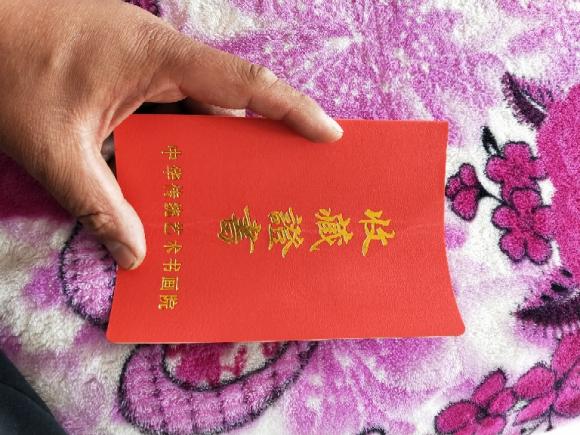 收藏證書
中华传统艺术书画院